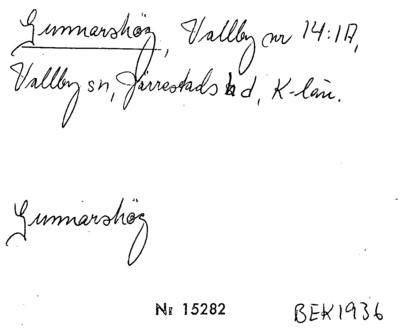 Gunnarshög, Vallby nr 14:1A,
Vallby sn, Järrestads hd, K-län.
Gunnarshög
Nr 15282 BEK1936